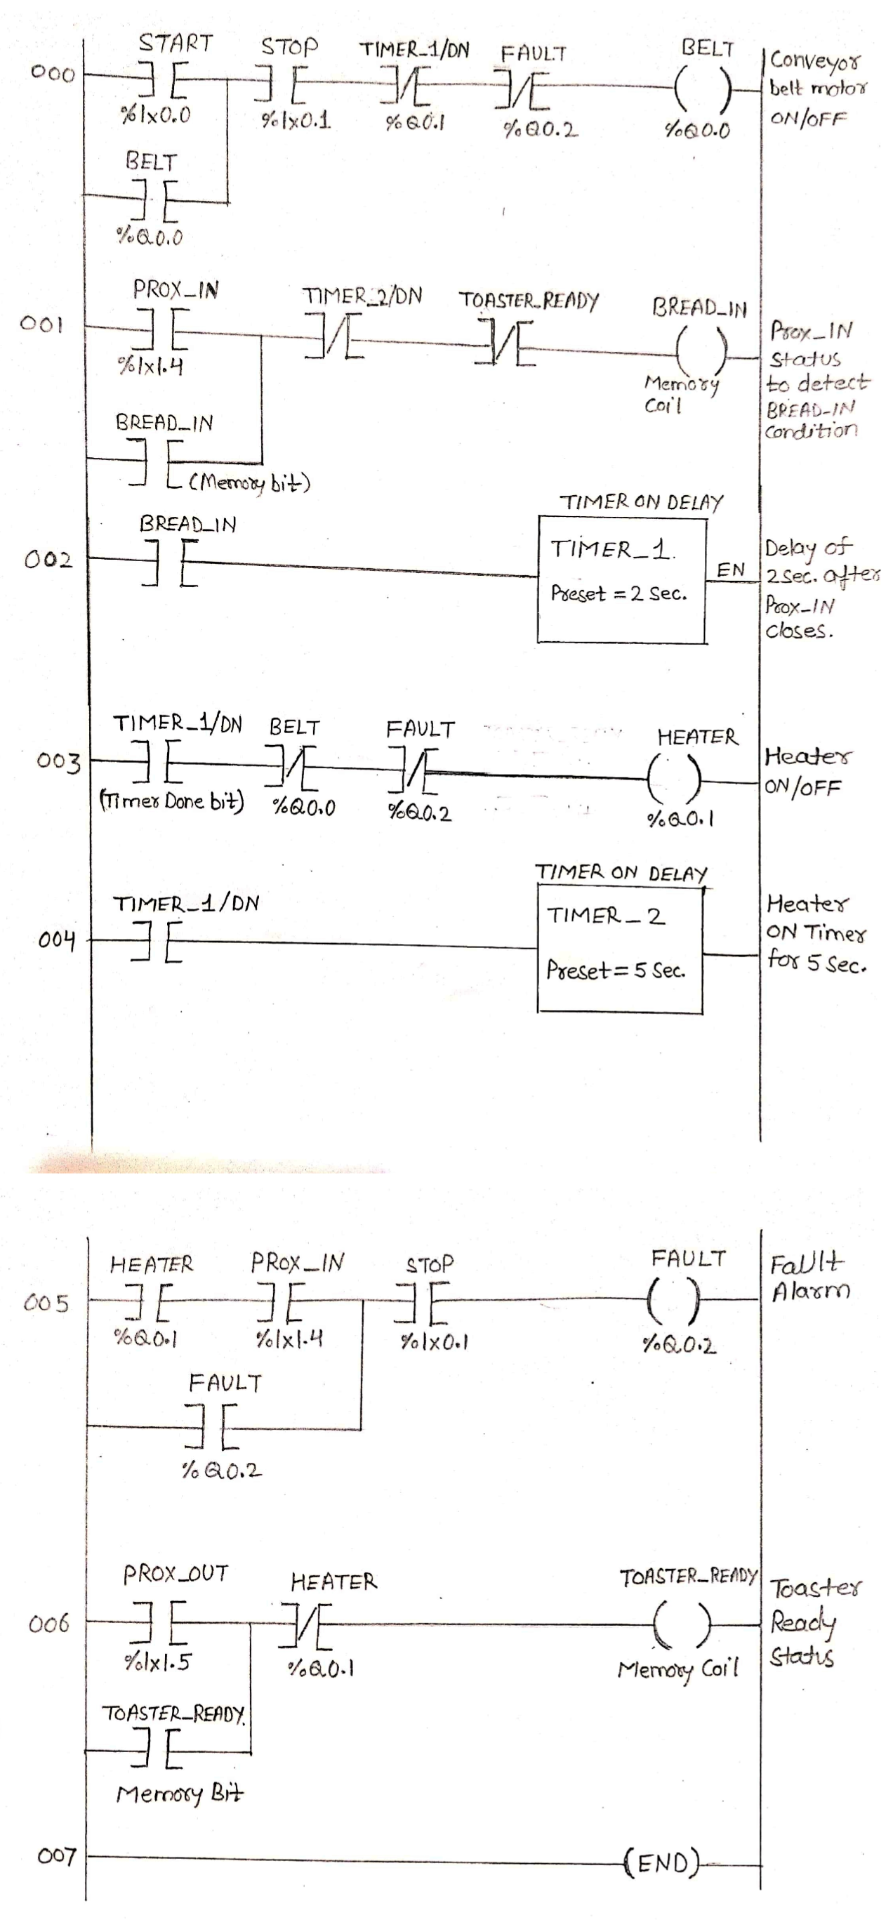 START STOP TIMER_1/DN FAULT BELT
000
%Ix0.0 %Ix0.1 %Q0.1 %Q0.2 %Q0.0
Conveyor
belt motor
ON/OFF
BELT
%Q0.0
PROX_IN TIMER_2/DN TOASTER_READY BREAD_IN
001
%Ix1.4
Memory
Coil
Prox_IN
Status
to detect
BREAD-IN
Condition
BREAD_IN
(Memory bit)
TIMER ON DELAY
BREAD_IN
002
TIMER_1.
Preset = 2 Sec.
EN
Delay of
2 Sec. after
Prox-IN
closes.
TIMER_1/DN BELT FAULT HEATER
003
(Timer Done bit) %Q0.0 %Q0.2 %Q0.1
Heater
ON/OFF
TIMER ON DELAY
TIMER_1/DN
004
TIMER_2
Preset = 5 Sec.
Heater
ON Timer
for 5 Sec.
HEATER PROX_IN STOP FAULT
005
%Q0.1 %Ix1.4 %Ix0.1 %Q0.2
Fault
Alarm
FAULT
%Q0.2
PROX_OUT HEATER TOASTER_READY
006
%Ix1.5 %Q0.1 Memory Coil
Toaster
Ready
Status
TOASTER_READY.
Memory Bit
007
(END)